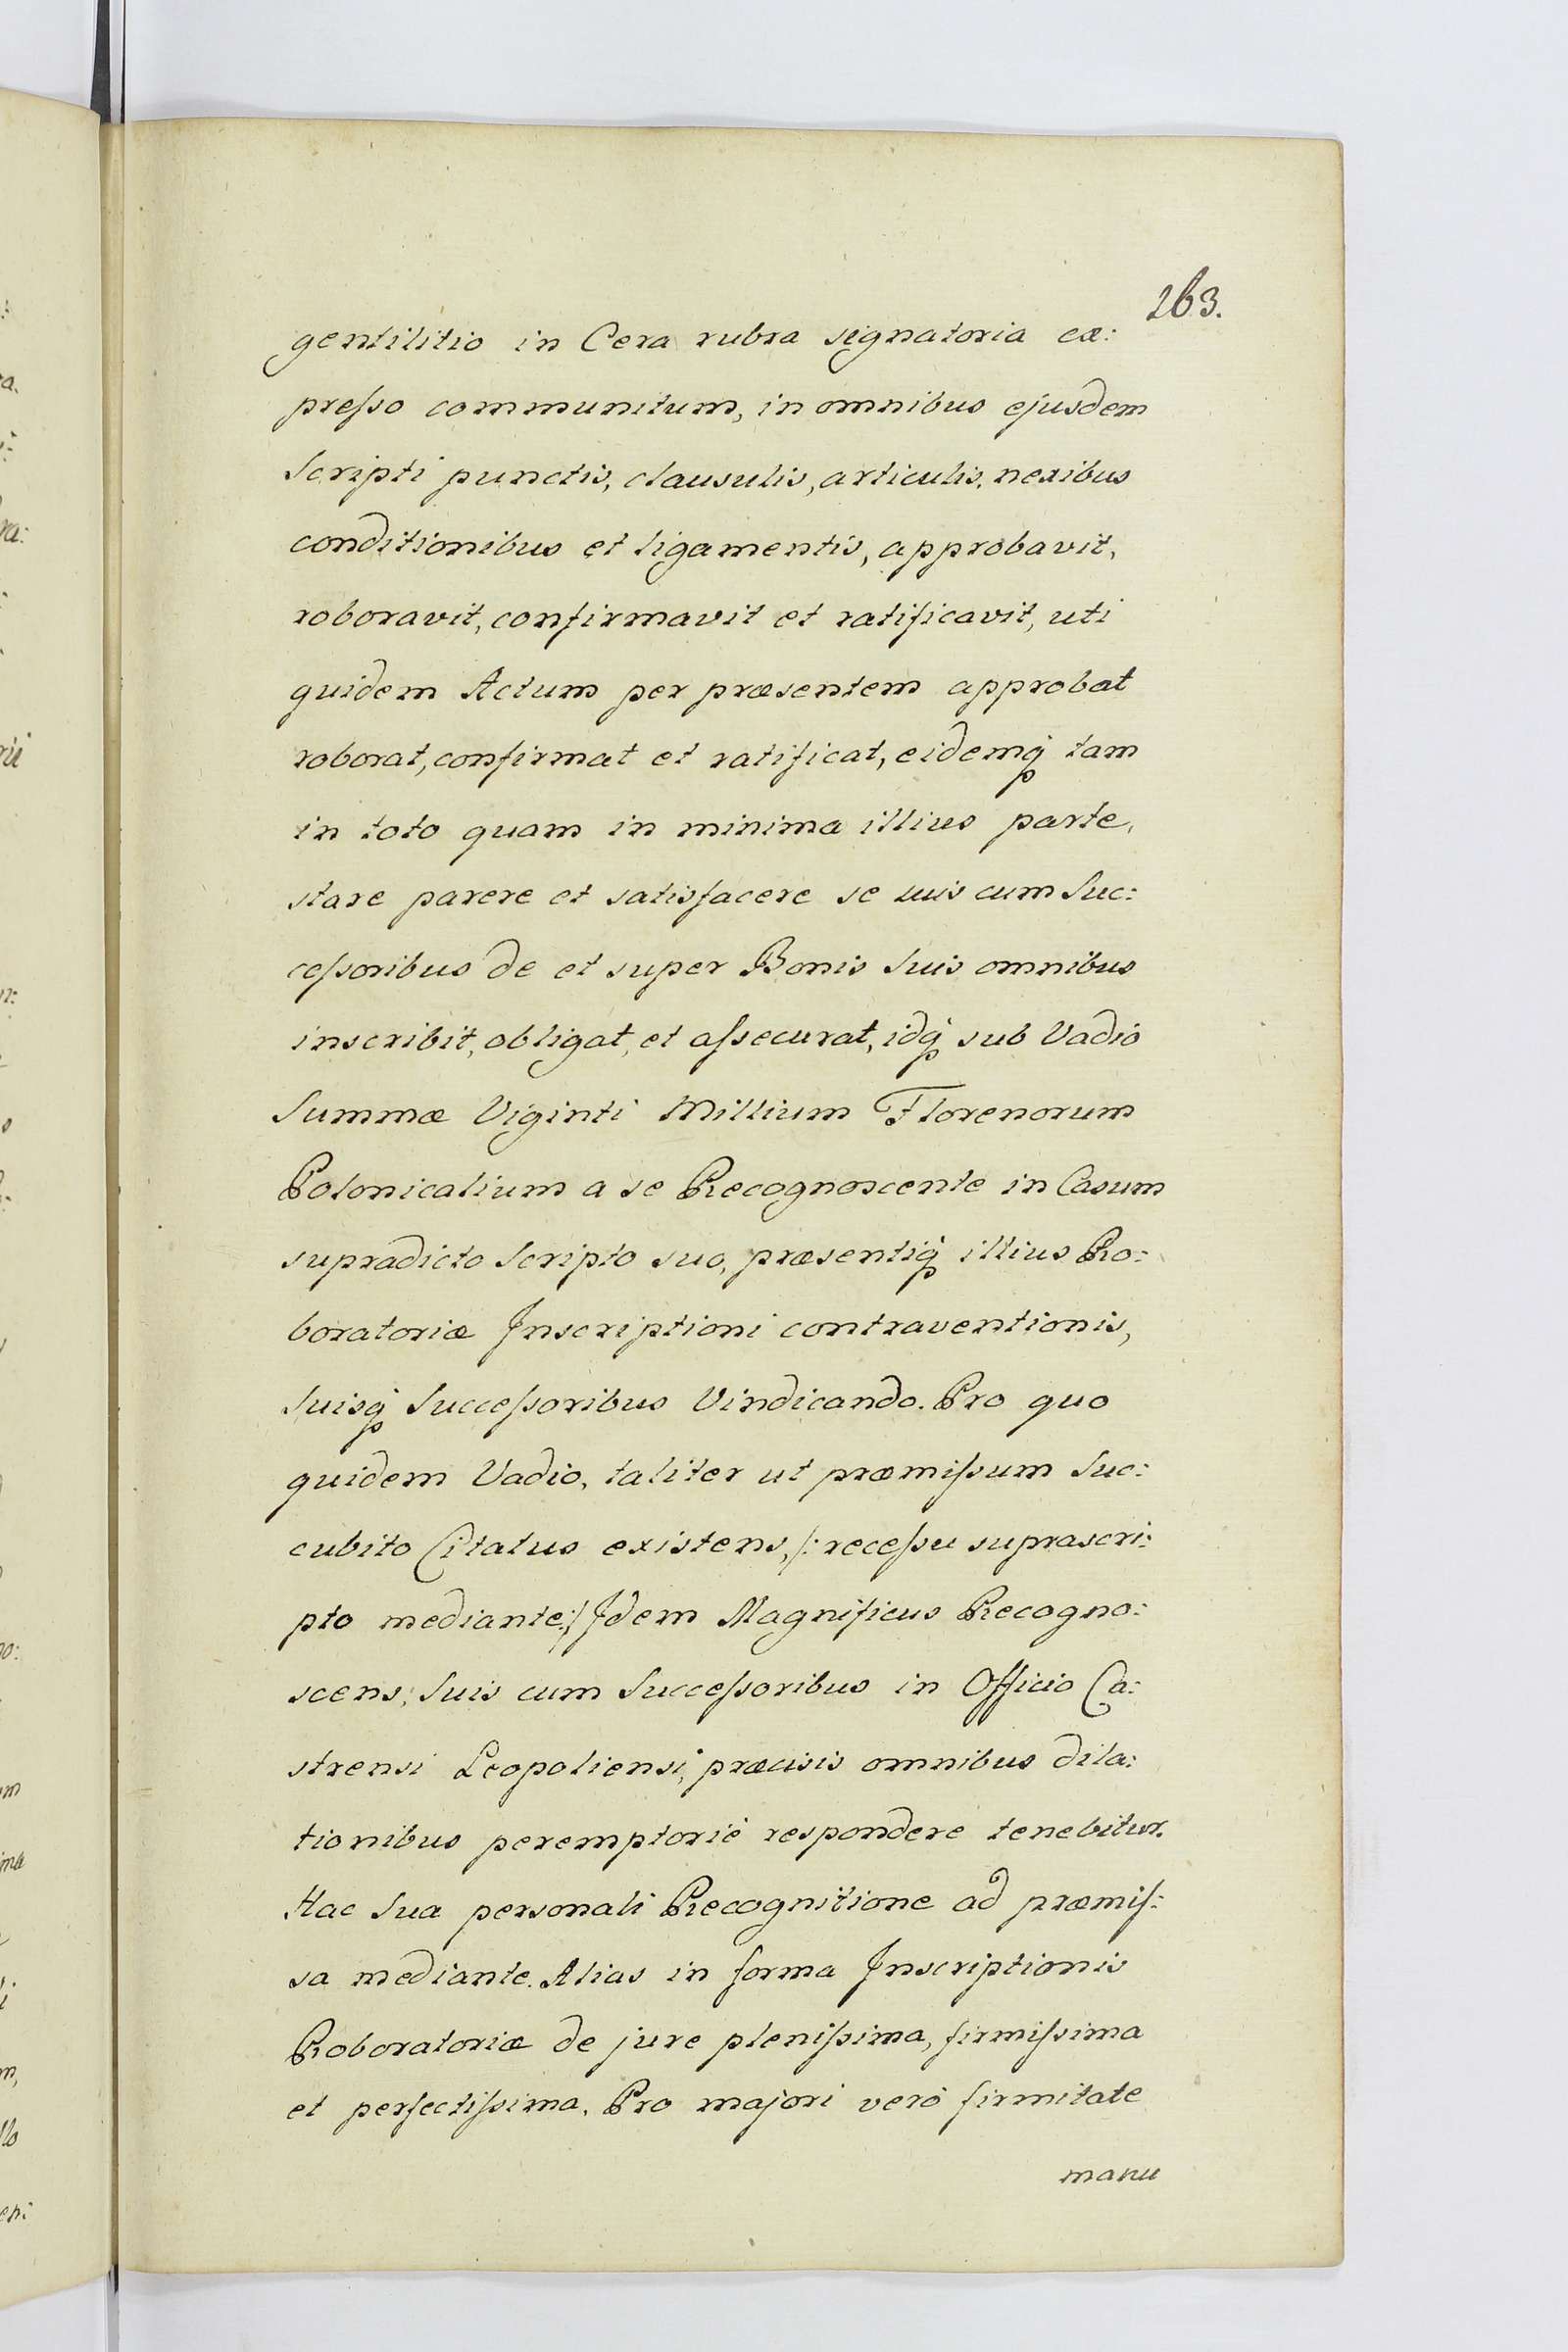 263.
gentilitio in Cera rubra signatoria ex:
preſso communitum, in omnibus ejusdem
Scripti punctis, clausulis, articulis, nexibus
conditionibus et ligamentis, approbavit,
roboravit, confirmavit et ratificavit, uti
quidem Actum per præsentem approbat
roborat, confirmat et ratificat, eidemq́ tam
in toto quam in minima illius parte,
stare parere et satisfacere se suis cum Suc:
ceſsoribus de et super Bonis Suis omnibus
inscribit, obligat, et aſsecurat, idq́ sub Vadio
Summæ Viginti Millium Florenorum
Polonicalium a se Recognoscente in Casum
supradicto Scripto suo, præsentiq́ illius Ro:
boratoriæ Inscriptioni contraventionis,
Suisq́ Succeſsoribus Vindicando. Pro quo
quidem Vadio, taliter ut præmiſsum Suc:
cubito Citatus existens, /: receſsu suprascri:
pto mediante :/ Idem Magnificus Recogno:
scens, Suis cum Succeſsoribus in Officio Ca:
strensi Leopoliensi, præcisis omnibus dila:
tionibus peremptoriè respondere tenebitur.
Hac Sua personali Recognitione ad præmiſ:
sa mediante. Alias in forma Inscriptionis
Roboratoriæ de jure pleniſsima, firmiſsima
et perfectiſsima. Pro majori verò firmitate
manu